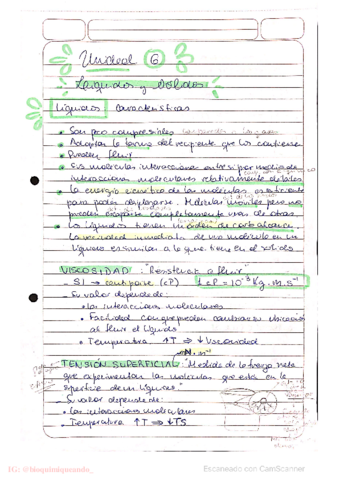 Unidad 6
Líquidos y Sólidos
Líquidos: Características
Son poco compresibles
Adoptan la forma del recipiente que los contiene
Pueden fluir
Sus moléculas interaccionan entre sí por medio de
interacciones moleculares relativamente débiles
La energía cinética de las moléculas es suficiente
para poder desplazarse. Moléculas móviles pero no
pueden escaparse completamente unas de otras.
Los líquidos tienen un orden de corto alcance:
la vecindad inmediata de una molécula en un
líquido es similar a lo que tiene en el sólido
VISCOSIDAD: "Resistencia a fluir"
- SI → centipoise (cP) 1 cP = 10⁻³ Kg.m.s⁻¹
- Su valor depende de:
• las interacciones moleculares
• Facilidad con que puedan cambiar su ubicación
al fluir el líquido
• Temperatura ↑T ⇒ ↓Viscosidad
N.m⁻¹
TENSIÓN SUPERFICIAL: "Medida de la fuerza neta
que experimentan las moléculas que están en la
superficie de un líquido"
- Su valor depende de:
• Las interacciones moleculares
• Temperatura ↑T ⇒ ↓TS
IG: @bioquimiqueando_
Escaneado con CamScanner